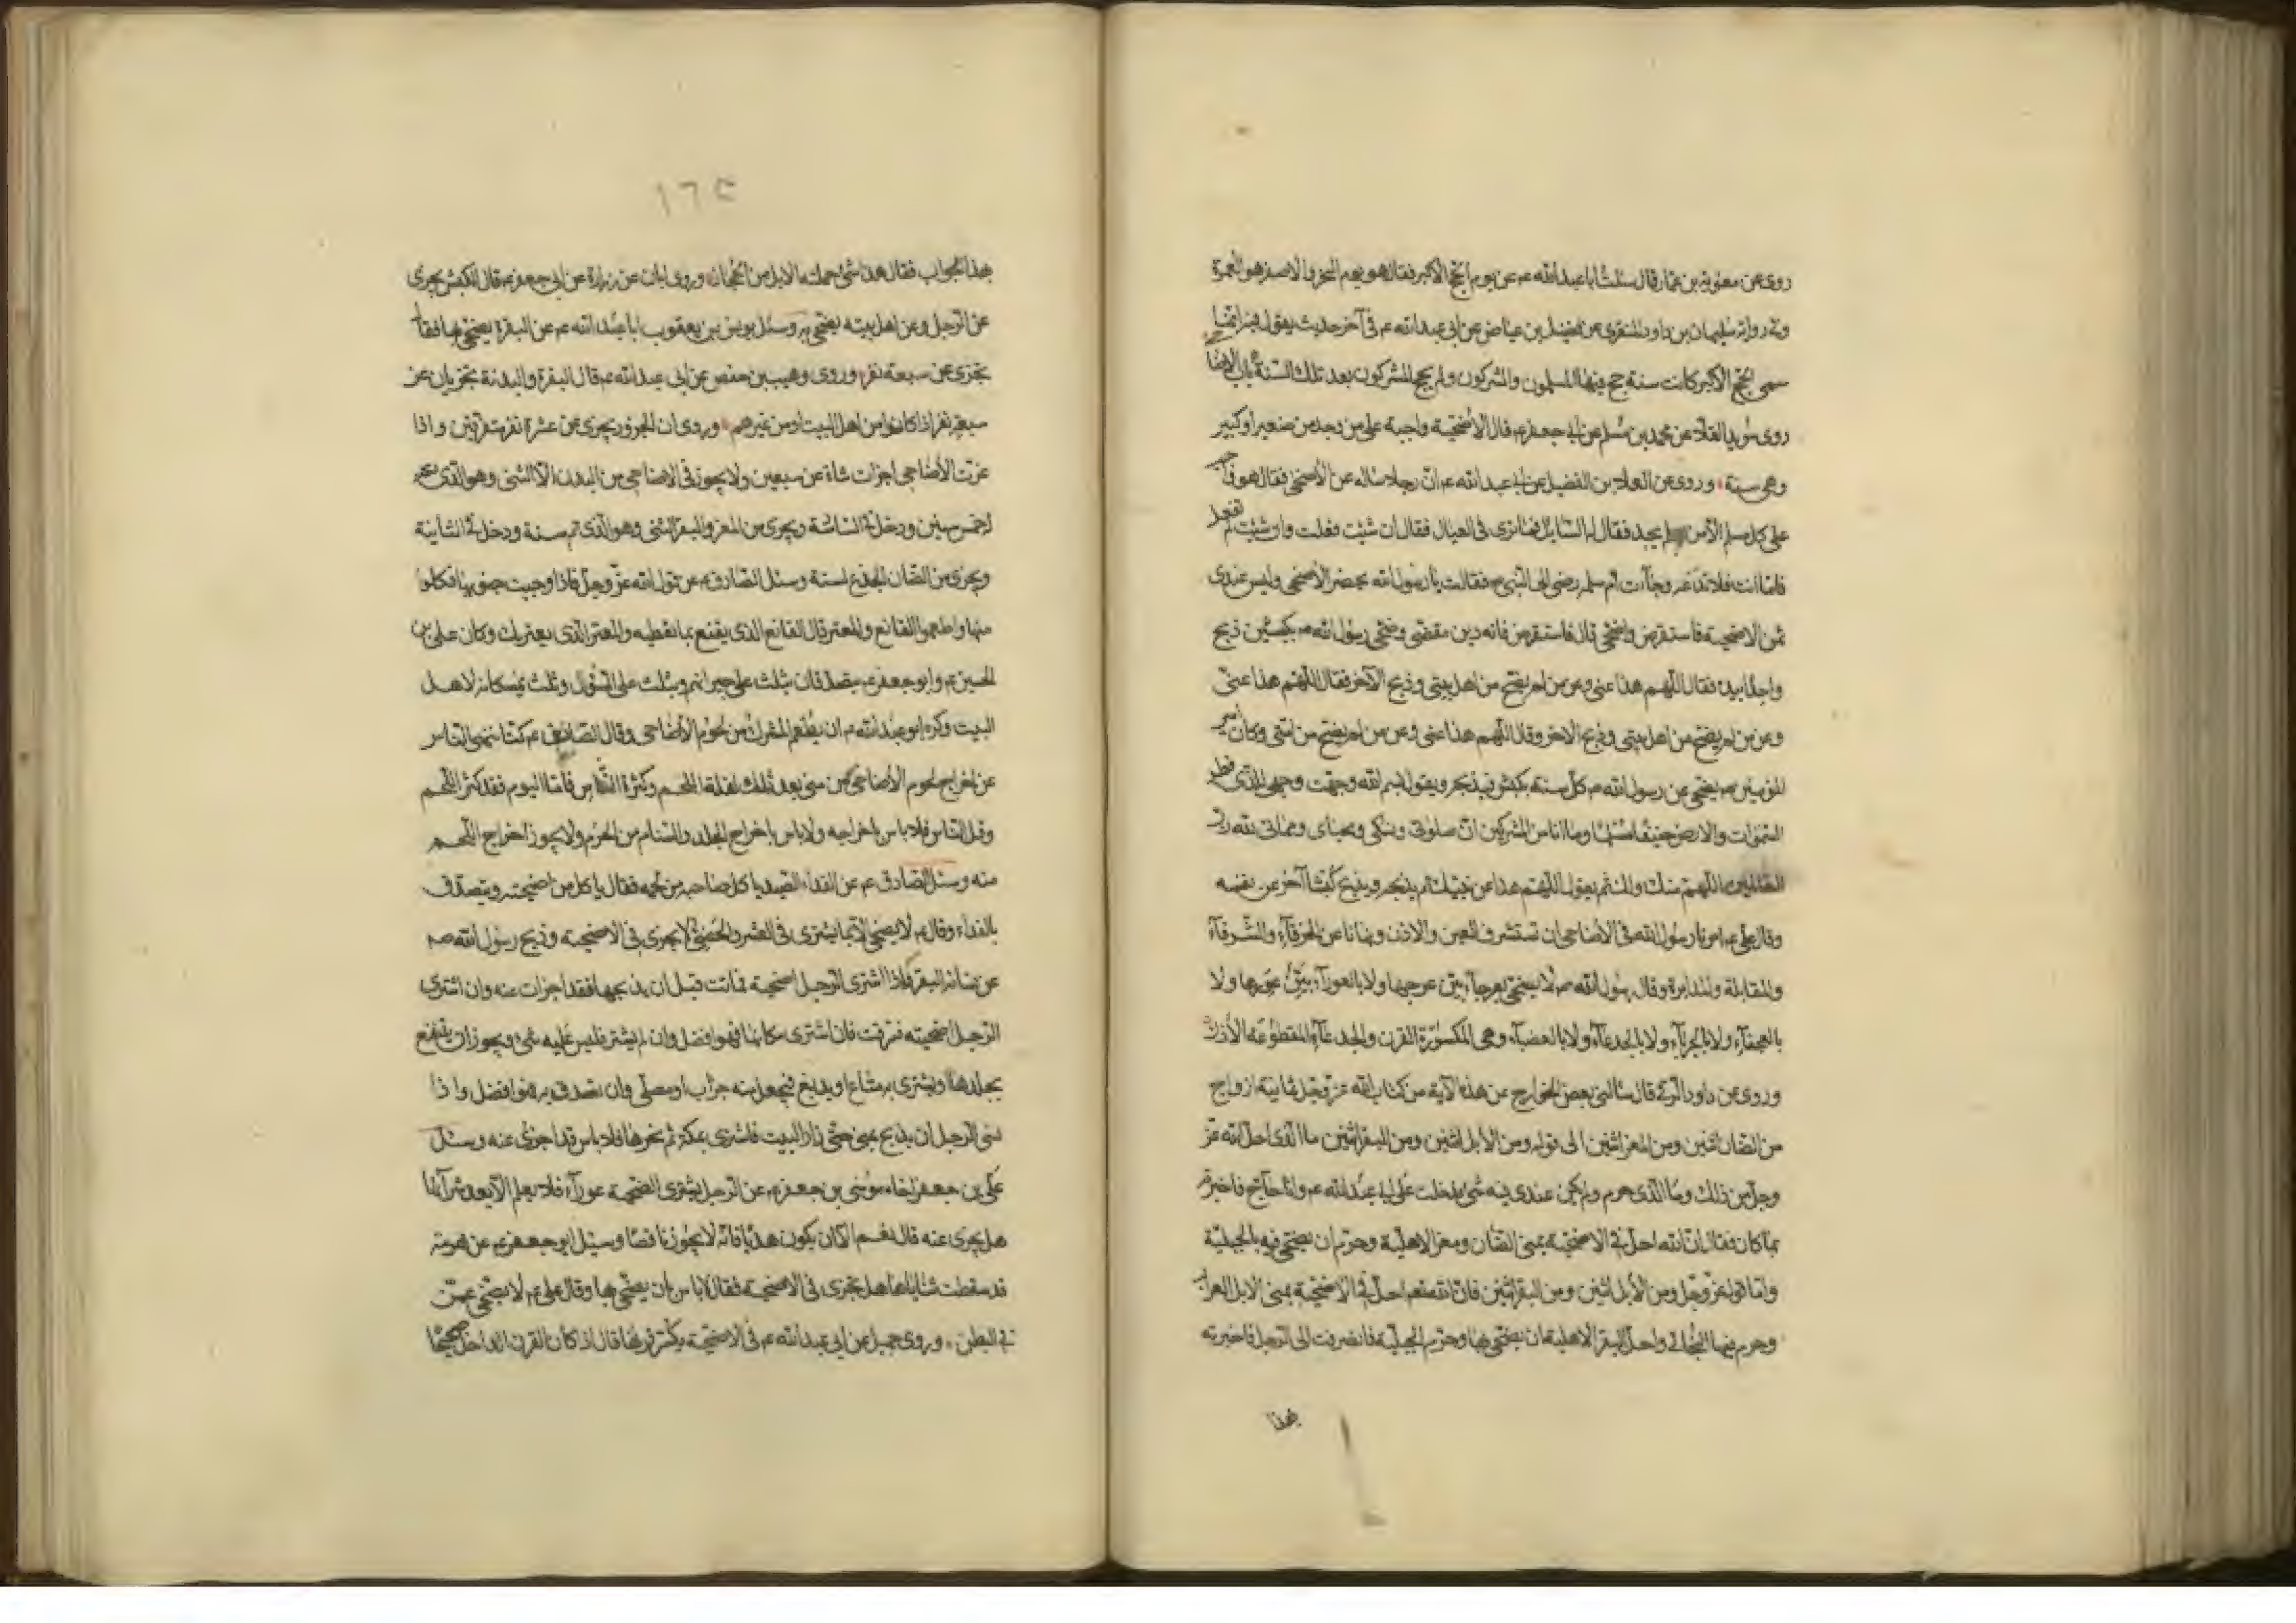 روى عن معوية بن عمار قال سئلت ابا عبد الله عم عن يوم الحج الاكبر فقال هو يوم النحر والاصغر هو العمرة
وفى رواية سليمان بن داود المنقرى عن فضيل بن عياض عن ابى عبد الله عم فى آخر حديث يقول فيه انما
سمى الحج الاكبر كانت سنة حج فيها المسلمون والمشركون ولم يحج المشركون بعد تلك السنة باب الاضاحى
روى سويد القلا عن محمد بن مسلم عن ابى جعفر عم قال الاضحية واجبة على من وجد من صغير او كبير
وهى سنة وروى عن العلاء بن الفضيل عن ابى عبد الله عم ان رجلا ساله عن الاضحى فقال هو واجب
على كل مسلم الا من لم يجد فقال له السايل فما ترى فى العيال فقال ان شئت فعلت وان شئت لم تفعل
فاما انت فلا تدعه وجاءت ام سلمه رضى الى النبى ص فقالت يا رسول الله يحضر الاضحى وليس عندى
ثمن الاضحية فاستقرض واضحى قال فاستقرضى فانه دين مقضى وضحى رسول الله ص بكبشين ذبح
واحدا بيده فقال اللهم هذا عنى وعن من لم يضح من اهل بيتى وذبح الآخر فقال اللهم هذا عنى
وعن من لم يضح من اهل بيتى وذبح الاخر وقال اللهم هذا عنى وعن من لم يضح من امتى وكان امير
المؤمنين عم يضحى عن رسول الله ص كل سنة بكبش فيذبحه ويقول بسم الله وجهت وجهى للذى فطر
السموات والارض حنيفا مسلما وما انا من المشركين ان صلوتى ونسكى ومحياى ومماتى لله رب
العالمين اللهم منك ولك ثم يقول اللهم هذا عن نبيك ثم يذبحه ويذبح كبشا آخر عن نفسه
وقال على عم امرنا رسول الله فى الاضاحى ان نستشرف العين والاذن ونهانا عن الخرقآء والشرقآء
والمقابلة والمدابرة وقال رسول الله ص لا يضحى بعرجآء بين عرجها ولا بالعورآء بين عورها ولا
بالعجفآء ولا بالجربآء ولا بالجدعآء ولا بالعضبآء وهى المكسورة القرن والجدعآء المقطوعة الاذن
وروى عن داود الرقى قال سالنى بعض الخوارج عن هذه الآية من كتاب الله عز وجل ثمانية ازواج
من الضان اثنين ومن المعز اثنين الى قوله ومن الابل اثنين ومن البقر اثنين ما الذى احل الله عز
وجل من ذلك وما الذى حرم ولم يكن عندى فيه شئ فدخلت على ابى عبد الله عم وانا حآج فاخبرته
بما كان فقال ان الله احل فى الاضحية بمنى الضان ومعز الاهلية وحرم ان يضحى فيه بالجبلية
واما قوله عز وجل ومن الابل اثنين ومن البقر اثنين فان الله تعم احل فى الاضحية بمنى الابل العراب
وحرم فيها البخاتى واحل البقر الاهلية ان يضحى بها وحرم الجبلية فانصرفت الى الرجل فاخبرته
بهذا
١٦٥
بهذا الجواب فقال هذا شئ حملته الابل من الحجاز وروى ابان عن زرارة عن ابى جعفر عم قال الكبش يجزى
عن الرجل وعن اهل بيته يضحى به وسئل يونس بن يعقوب ابا عبد الله عم عن البقرة يضحى بها فقال
تجزى عن سبعة نفر وروى وهيب بن حفص عن ابى عبد الله عم قال البقرة والبدنة تجزيان عن
سبعة نفر اذا كانوا من اهل البيت او من غيرهم وروى ان الجزور يجزى عن عشرة نفر متفرقين واذا
عزت الاضاحى اجزات شاة عن سبعين ولا يجوز فى الاضاحى من البدن الا الثنى وهو الذى تم
له خمس سنين ودخل فى السادسة ويجزى من المعز والبقر الثنى وهو الذى تم سنة ودخل فى الثانية
ويجزى من الضان الجذع لسنة وسئل الصادق عم عن قول الله عز وجل فاذا وجبت جنوبها فكلوا
منها واطعموا القانع والمعتر قال القانع الذى يقنع بما تعطيه والمعتر الذى يعتريك وكان على بن
الحسين عم وابو جعفر عم يتصدقان بثلث على جيرانهم وبثلث على السؤال وثلث يمسكانه لاهل
البيت وكره ابو عبد الله عم ان يطعم المشرك من لحوم الاضاحى وقال الصادق عم كنا ننهى الناس
عن اخراج لحوم الاضاحى من منى بعد ثلث لقلة اللحم وكثرة الناس فاما اليوم فقد كثر اللحم
وقل الناس فلا باس باخراجه ولا باس باخراج الجلد والسنام من الحرم ولا يجوز اخراج اللحم
منه وسئل الصادق عم عن الفداء الصيد ياكل صاحبه من لحمه فقال ياكل من اضحيته ويتصدق
بالفداء وقال عم لا يضحى الا بما يشترى فى العشر والخصى لا يجزى فى الاضحية وذبح رسول الله ص
عن نسائه البقر فاذا اشترى الرجل اضحية فماتت قبل ان يذبحها فقد اجزات عنه وان اشترى
الرجل اضحيته فسرقت فان اشترى مكانها فهو افضل وان لم يشتر فليس عليه شئ ويجوز ان ينتفع
بجلدها ويشترى به متاع او يدبغ فيجعل منه جراب او مصلى وان تصدق به فهو افضل واذا
نسى الرجل ان يذبح بمنى حتى زار البيت فاشترى بمكة ثم نحرها فلا باس قد اجزى عنه وسئل
على بن جعفر اخاه موسى بن جعفر عم عن الرجل يشترى الضحية عورآء فلا يعلم الا بعد شرآئها
هل يجزى عنه قال نعم الا ان يكون هديا فانه لا يجوز ناقصا وسئل ابو جعفر عم عن هرمة
قد سقطت ثناياها هل تجزى فى الاضحية فقال لا باس ان يضحى بها وقال على عم لا يضحى عمن
فى البطن وروى جميل عن ابى عبد الله عم فى الاضحية يكسر قرنها قال اذ كان القرن الداخل صحيحا